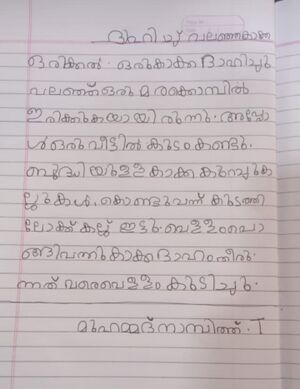 ദാഹിച്ചു വലഞ്ഞകാക്ക
ഒരിക്കൽ. ഒരുകാക്ക ദാഹിച്ചു
വലഞ്ഞ് ഒരു മരക്കൊമ്പിൽ
ഇരിക്കുകയായിരുന്നു. അപ്പോ
ൾ ഒരു വീട്ടിൽ കുടം കണ്ടു.
ബുദ്ധിയുള്ള കാക്ക കുറച്ചുക
ല്ലുകൾ. കൊണ്ടുവന്ന് കുടത്തി
ലേക്ക് കല്ല് ഇട്ടു. വെള്ളംപൊ
ങ്ങിവന്നുകാക്കദാഹംതീരു
ന്നത് വരെവെള്ളം കുടിച്ചു.
മുഹമ്മദ് നാസിത്ത്. T